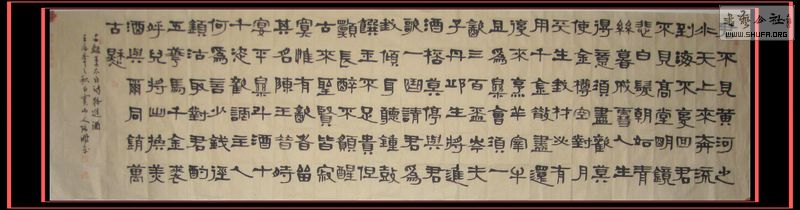 书艺公社
WWW.SHUFA.ORG
不見黃河之
水天上來奔流
到海不復回君
不見高堂明鏡
悲白髮朝如青
絲暮成雪人生
得意須盡歡莫
使金樽空對月
天生我材必有
用千金散盡還
復來烹羊宰牛
且為樂會須一
飲三百盃岑夫
子丹丘生將進
酒杯莫停與君
歌一曲請君為
我傾耳聽鐘鼓
饌玉不足貴但
願長醉不願醒
古來聖賢皆寂
寞惟有飲者留
其名陳王昔時
宴平樂斗酒十
千恣歡謔主人
何為言少錢徑
須沽取對君酌
五花馬千金裘
呼兒將出換美
酒與爾同銷萬
古愁
李太白詩將進酒
年秋白雲山人